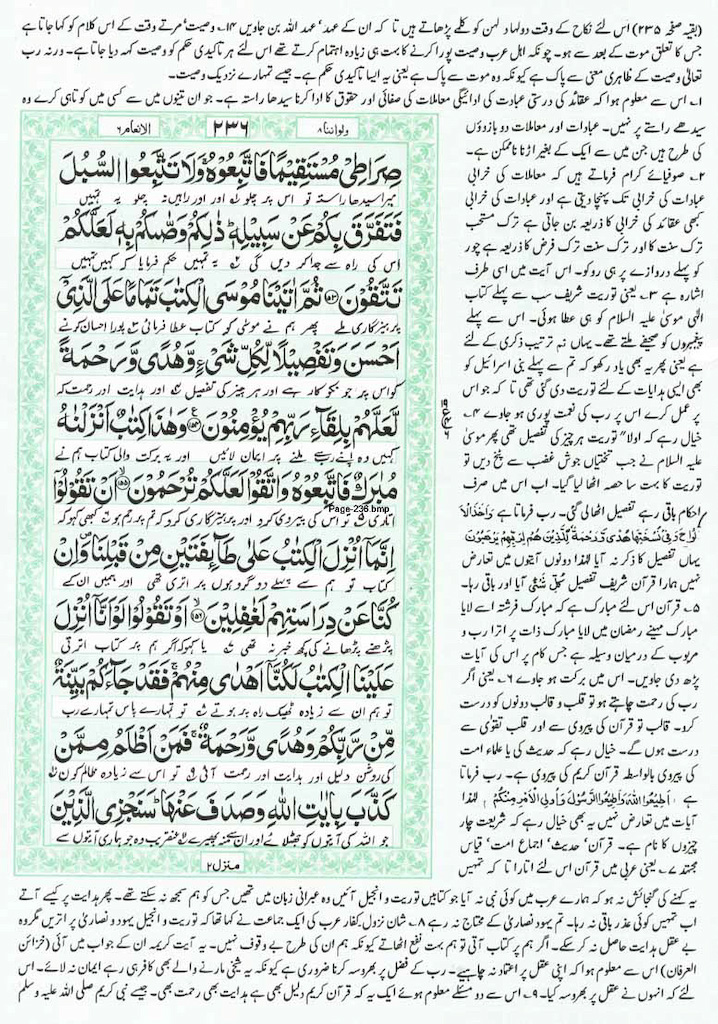 (بقیہ صفحہ ۲۳۵) اس لئے نکاح کے وقت دولہا دلہن کو کلمے پڑھاتے ہیں تا کہ ان کے عہد' عہد اللہ بن جاویں ۱۴۔ وصیت' مرتے وقت کے اس کلام کو کہا جاتا ہے
جس کا تعلق موت کے بعد سے ہو۔ چونکہ اہل عرب وصیت پورا کرنے کا بہت ہی زیادہ اہتمام کرتے تھے اس لئے ہر تاکیدی حکم کو وصیت کہہ دیا جاتا ہے۔ ورنہ رب
تعالیٰ وصیت کے ظاہری معنی سے پاک ہے کیونکہ وہ موت سے پاک ہے یعنی یہ ایسا تاکیدی حکم ہے۔ جیسے تمہارے نزدیک وصیت۔
۱۔ اس سے معلوم ہوا کہ عقائد کی درستی عبادت کی ادائیگی معاملات کی صفائی اور حقوق کا ادا کرنا سیدھا راستہ ہے۔ جو ان تینوں میں سے کسی میں کوتاہی کرے وہ
سیدھے راستے پر نہیں۔ عبادات اور معاملات دو بازوؤں
کی طرح ہیں جن میں سے ایک کے بغیر اڑنا ناممکن ہے۔
۲۔ صوفیائے کرام فرماتے ہیں کہ معاملات کی خرابی
عبادات کی خرابی تک پہنچا دیتی ہے اور عبادات کی خرابی
کبھی عقائد کی خرابی کا ذریعہ بن جاتی ہے ترک مستحب
ترک سنت کا اور ترک سنت ترک فرض کا ذریعہ ہے چور
کو پہلے دروازے پر ہی روکو۔ اس آیت میں اسی طرف
اشارہ ہے ۳۔ یعنی توریت شریف سب سے پہلے کتاب
الٰہی موسیٰ علیہ السلام کو ہی عطا ہوئی۔ اس سے پہلے
پیغمبروں کو صحیفے ملتے تھے۔ یہاں ثم ترتیب ذکری کے لئے
ہے یعنی پھر یہ بھی یاد رکھو کہ تم سے پہلے بنی اسرائیل کو
بھی ایسی ہدایات کے لئے توریت دی گئی تھی تا کہ جو اس
پر عمل کرے اس پر رب کی نعمت پوری ہو جاوے ۴۔
خیال رہے کہ اولا" توریت ہر چیز کی تفصیل تھی پھر موسیٰ
علیہ السلام نے جب تختیاں جوش غضب سے پٹخ دیں تو
توریت کا بہت سا حصہ اٹھا لیا گیا۔ اب اس میں صرف
احکام باقی رہے تفصیل اٹھالی گئی۔ رب فرماتا ہے
یہاں تفصیل کا ذکر نہ آیا لہٰذا دونوں آیتوں میں تعارض
نہیں ہمارا قرآن شریف تفصیل آیا اور باقی رہا۔
۵۔ قرآن اس لئے مبارک ہے کہ مبارک فرشتہ اسے لایا
مبارک مہینے رمضان میں لایا مبارک ذات پر اترا رب و
مربوب کے درمیان وسیلہ ہے جس کام پر اس کی آیات
پڑھ دی جاویں۔ اس میں برکت ہو جاوے ۶۔ یعنی اگر
رب کی رحمت چاہتے ہو تو قلب و قالب دونوں کو درست
کرو۔ قالب تو قرآن کی پیروی سے اور قلب تقویٰ سے
درست ہوں گے۔ خیال رہے کہ حدیث کی یا علماء امت
کی پیروی بالواسطہ قرآن کریم کی پیروی ہے۔ رب فرماتا
ہے اَطِيْعُوا اللّٰهَ وَاَطِيْعُوا الرَّسُوْلَ وَاُولِى الْاَمْرِ مِنْكُمْ لہٰذا
آیات میں تعارض نہیں یہ بھی خیال رہے کہ شریعت چار
چیزوں کا نام ہے۔ قرآن' حدیث' اجماع امت' قیاس
مجتہد ۷۔ یعنی عربی میں قرآن اس لئے اتارا تا کہ تمہیں
ولواننا ۸
۲۳۶
الانعام ۶
صِرَاطِیْ مُسْتَقِیْمًا فَاتَّبِعُوْهُ ۚ وَلَا تَتَّبِعُوا السُّبُلَ
میرا سیدھا راستہ تو اس پر چلو اور اور راہیں نہ چلو یہ تمہیں
فَتَفَرَّقَ بِكُمْ عَنْ سَبِیْلِهٖ ؕ ذٰلِكُمْ وَصّٰىكُمْ بِهٖ لَعَلَّكُمْ
اس کی راہ سے جدا کر دیں گی یہ تمہیں حکم فرمایا کہ کہیں تمہیں
تَتَّقُوْنَ ۝۱۵۳ ثُمَّ اٰتَیْنَا مُوْسَى الْكِتٰبَ تَمَامًا عَلَى الَّذِیْۤ
پرہیزگاری ملے پھر ہم نے موسیٰ کو کتاب عطا فرمائی پورا احسان کرنے
اَحْسَنَ وَتَفْصِیْلًا لِّكُلِّ شَیْءٍ وَّهُدًى وَّرَحْمَةً
کو اس پر جو نکوکار ہے اور ہر چیز کی تفصیل اور ہدایت اور رحمت کہ
لَّعَلَّهُمْ بِلِقَآءِ رَبِّهِمْ یُؤْمِنُوْنَ ۝۱۵۴ وَهٰذَا كِتٰبٌ اَنْزَلْنٰهُ
کہیں وہ اپنے رب سے ملنے پر ایمان لائیں اور یہ برکت والی کتاب ہم نے
مُبٰرَكٌ فَاتَّبِعُوْهُ وَاتَّقُوْا لَعَلَّكُمْ تُرْحَمُوْنَ ۝۱۵۵ اَنْ تَقُوْلُوْۤا
Page-236.bmp
اتاری تو اس کی پیروی کرو اور پرہیزگاری کرو کہ تم پر رحم ہو کبھی کہو کہ
اِنَّمَاۤ اُنْزِلَ الْكِتٰبُ عَلٰى طَآىِٕفَتَیْنِ مِنْ قَبْلِنَا ۪ وَاِنْ
کتاب تو ہم سے پہلے دو گروہوں پر اتری تھی اور ہمیں ان کے
كُنَّا عَنْ دِرَاسَتِهِمْ لَغٰفِلِیْنَ ۝۱۵۶ اَوْ تَقُوْلُوْا لَوْ اَنَّاۤ اُنْزِلَ
پڑھنے پڑھانے کی کچھ خبر نہ تھی یا کہو کہ اگر ہم پر کتاب اترتی
عَلَیْنَا الْكِتٰبُ لَكُنَّاۤ اَهْدٰى مِنْهُمْ ۚ فَقَدْ جَآءَكُمْ بَیِّنَةٌ
تو ہم ان سے زیادہ ٹھیک راہ پر ہوتے تو تمہارے پاس تمہارے رب
مِّنْ رَّبِّكُمْ وَهُدًى وَّرَحْمَةٌ ۚ فَمَنْ اَظْلَمُ مِمَّنْ
کی روشن دلیل اور ہدایت اور رحمت آئی تو اس سے زیادہ ظالم کون
كَذَّبَ بِاٰیٰتِ اللّٰهِ وَصَدَفَ عَنْهَا ؕ سَنَجْزِی الَّذِیْنَ
جو اللہ کی آیتوں کو جھٹلائے اور ان سے منہ پھیرے عنقریب وہ جو ہماری آیتوں سے
منزل ۲
یہ کہنے کی گنجائش نہ ہو کہ ہمارے عرب میں کوئی نبی نہ آیا جو کتابیں توریت و انجیل آئیں وہ عبرانی زبان میں تھیں جس کو ہم سمجھ نہ سکتے تھے۔ پھر ہدایت پر کیسے آتے
اب تمہیں کوئی عذر باقی نہ رہا۔ تم یہود نصاریٰ کے محتاج نہ رہے ۸۔ شان نزول کفار عرب کی ایک جماعت نے کہا تھا کہ توریت و انجیل یہود و نصاریٰ پر اتریں مگر وہ
بے عقل ہدایت حاصل نہ کر سکے۔ اگر ہم پر کتاب آتی تو ہم بہت نفع اٹھاتے کیونکہ ہم ان کی طرح بے وقوف نہیں۔ یہ آیت کریمہ ان کے جواب میں آئی (خزائن
العرفان) اس سے معلوم ہوا کہ اپنی عقل پر اعتماد نہ چاہیے۔ رب کے فضل پر بھروسہ کرنا ضروری ہے کیونکہ یہ شیخی مارنے والے بھی کافر ہی رہے ایمان نہ لائے۔ اس
لئے کہ انہوں نے عقل پر بھروسہ کیا۔ ۹۔ اس سے دو مسئلے معلوم ہوئے ایک یہ کہ قرآن کریم دلیل بھی ہے ہدایت بھی رحمت بھی۔ جیسے نبی کریم صلی اللہ علیہ وسلم